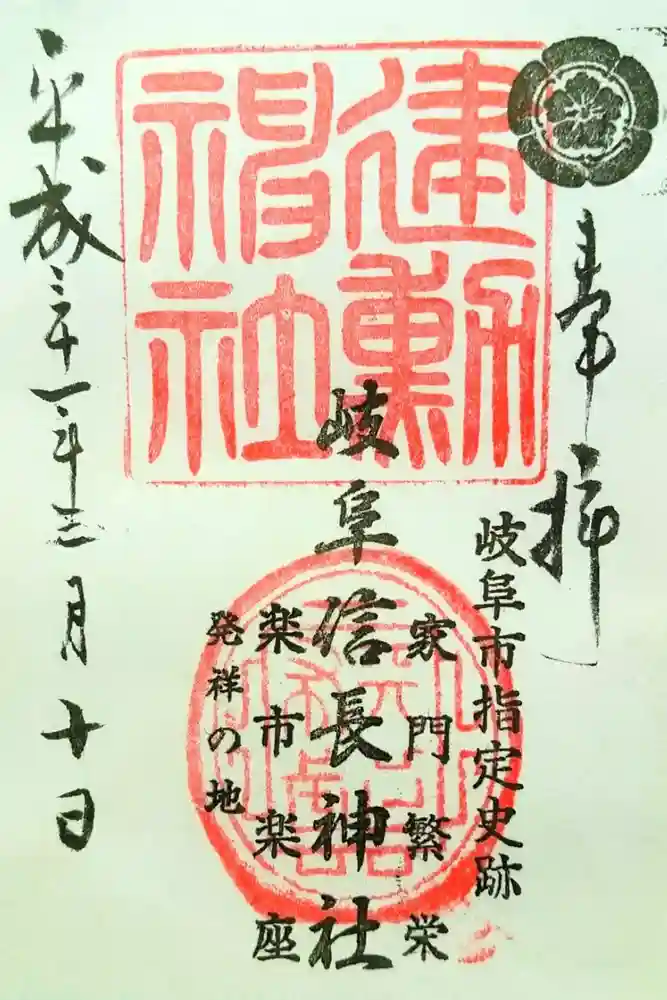 奉拝
岐阜市指定史跡
家門繁栄
岐阜信長神社
建勲
神社
楽市楽座
発祥の地
平成三十一年三月十日